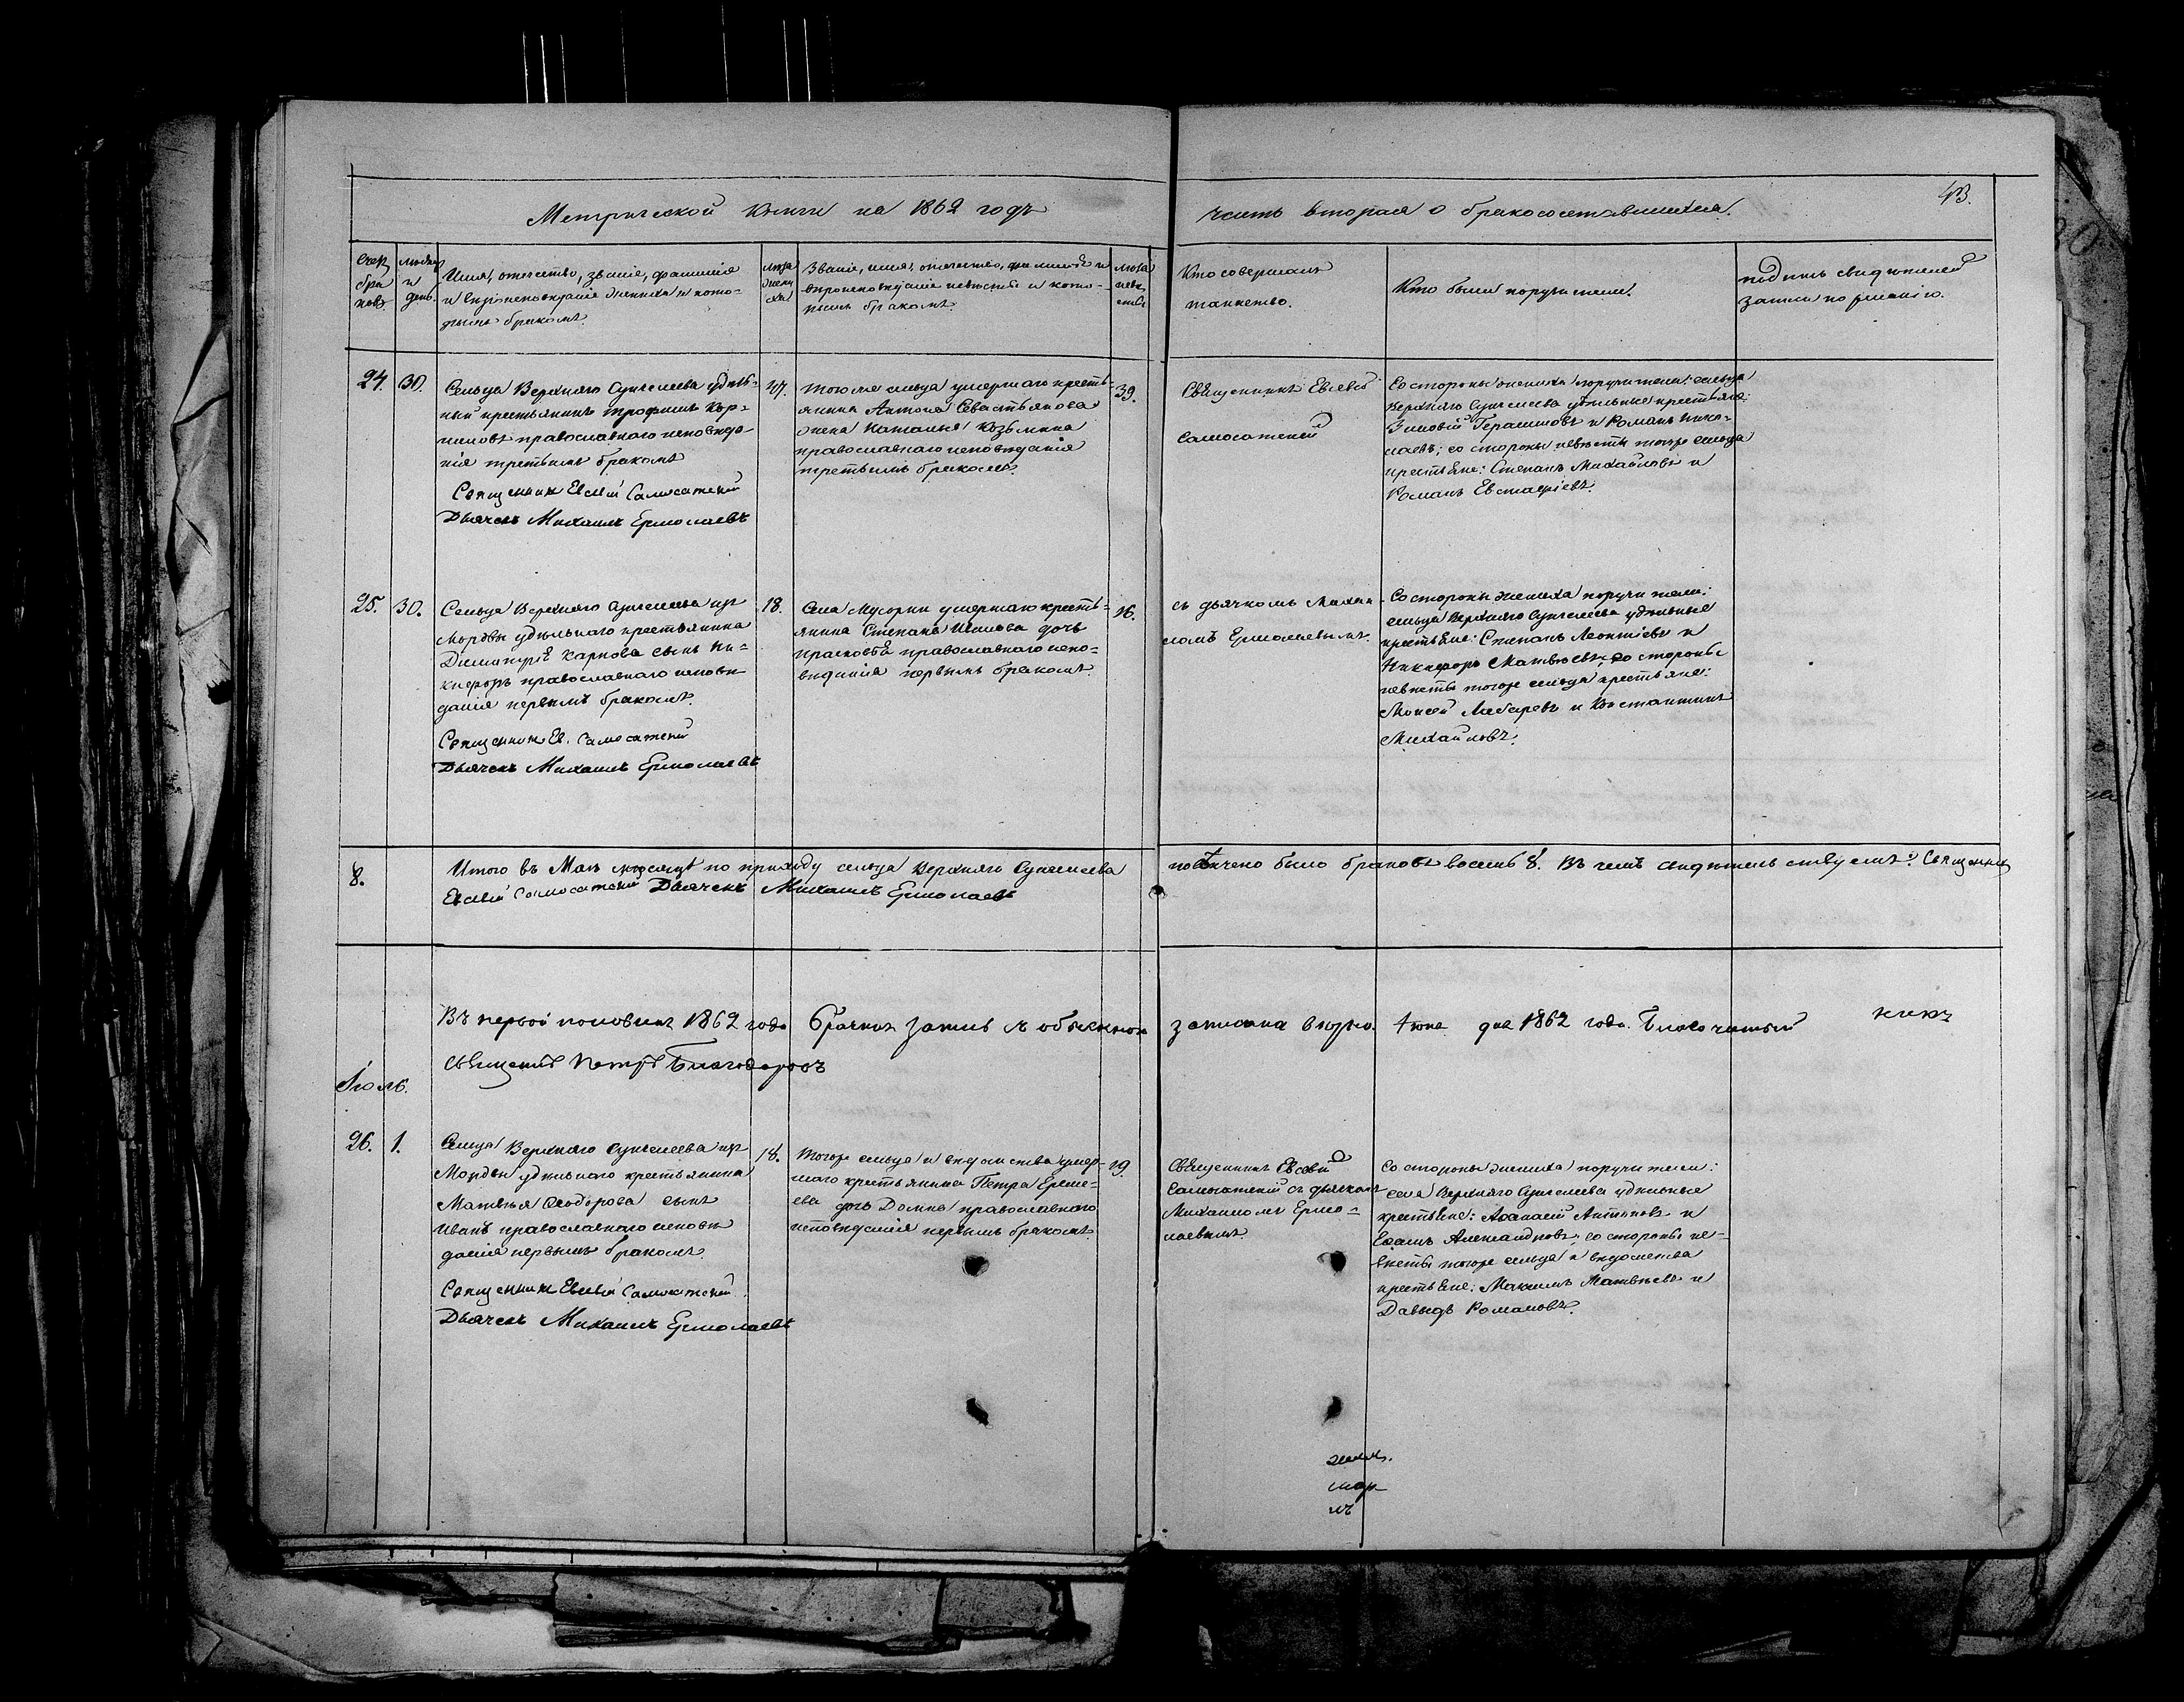 Метрической книги на 1862 годъ
часть вторая о бракосочетавшихся.
43.
Счетъ браковъ.
Имя, отечество, званіе, фамилія
и вѣроисповѣданіе жениха и кото-
рымъ бракомъ.
Званіе, имя, отечество, фамилія и
вѣроисповѣданіе невѣсты и кото-
рымъ бракомъ.
Кто совершалъ
таинство.
Кто были поручители.
подпись свидѣтелей
записи по желанію.
24.
30.
Сельца Верхняго Сунчелеева удѣль-
ный крестьянинъ Трофимъ Кор-
ниловъ православнаго исповѣда-
нія третьимъ бракомъ
Священник Евсевій Самосатскій
Дьячекъ Михаилъ Ермолаевъ
47.
Тогоже сельца умершаго кресть-
янина Антона Севастьянова
жена Наталья Козьмина
православнаго исповѣданія
третьимъ бракомъ.
39.
Священникъ Евсевій
Самосатскій
Со стороны жениха поручители: сельца
Верхняго Сунчелеева удѣльные крестьяне:
Зиновій Герасимовъ и Романъ Нико-
лаевъ; со стороны невѣсты тогоже сельца
крестьяне: Степанъ Михайловъ и
Романъ Евстафіевъ.
25.
30.
Сельца Верхняго Сунчелеева изъ
Мордвы удѣльнаго крестьянина
Димитрія Карпова сынъ Ни-
кифоръ православнаго исповѣ
данія первымъ бракомъ.
Священник Ев. Самосатскій
Дьячекъ Михаилъ Ермолаевъ
18.
Села Мусорки умершаго кресть-
янина Степана дочь
Прасковья православнаго испо-
вѣданія первымъ бракомъ.
16.
съ дьячкомъ Михаи-
ломъ Ермолаевымъ.
Со стороны жениха поручители:
сельца Верхняго Сунчелеева удѣльные
крестьяне: Степанъ Леонтіевъ и
Никифоръ Матвѣевъ; со стороны
невѣсты тогоже сельца крестьяне:
Моисей Лазаревъ и Константинъ
Михайловъ.
8.
Итого въ Маѣ мѣсяцѣ по приходу сельца Верхняго Сунчелеева
повѣнчано было браковъ восемь 8. Въ чемъ свидѣтельствуемъ: Священникъ
Евсевій Самосатскій Дьячекъ Михаилъ Ермолаевъ
Въ первой половинѣ 1862 года
дня 1862 года. Благочинный
священникъ Петръ Благодаровъ
Іюль.
26.
1.
Сельца Верхняго Сунчелеева изъ
Мордвы удѣльнаго крестьянина
Матвѣя Ѳеодорова сынъ
Иванъ православнаго исповѣ
данія первымъ бракомъ.
Священник Евсевій Самосатскій
Дьячекъ Михаилъ Ермолаевъ
18.
Тогоже сельца и вѣдомства умер-
шаго крестьянина Петра Ереме-
ева дочь Домна православнаго
исповѣданія первымъ бракомъ
19.
Священникъ Евсевій
Самосатскій съ дьячкомъ
Михаиломъ Ермо-
лаевымъ
Со стороны жениха поручители:
села Верхняго Сунчелеева удѣльные
крестьяне: Аѳанасій Антоновъ и
Александровъ; со стороны не-
вѣсты тогоже сельца и вѣдомства
крестьяне: Максимъ Матвѣевъ и
Давыдъ Романовъ.